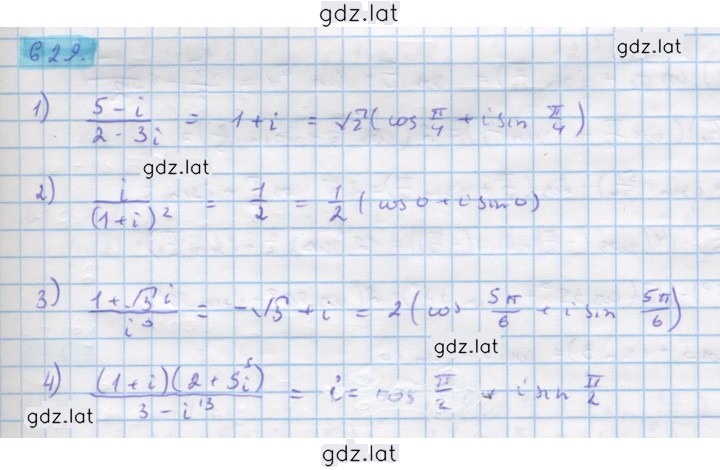 gdz.lat
629.
gdz.lat
1) (5 - i)/(2 - 3i) = 1 + i = √2 (cos π/4 + i sin π/4)
gdz.lat
2) i/(1+i)² = 1/2 = 1/2 (cos 0 + i sin 0)
3) (1 + √3 i)/i³ = -√3 + i = 2 (cos 5π/6 + i sin 5π/6)
gdz.lat
4) (1+i)(2 + 5i⁵)/(3 - i¹³) = i = cos π/2 + i sin π/2
gdz.lat
gdz.lat